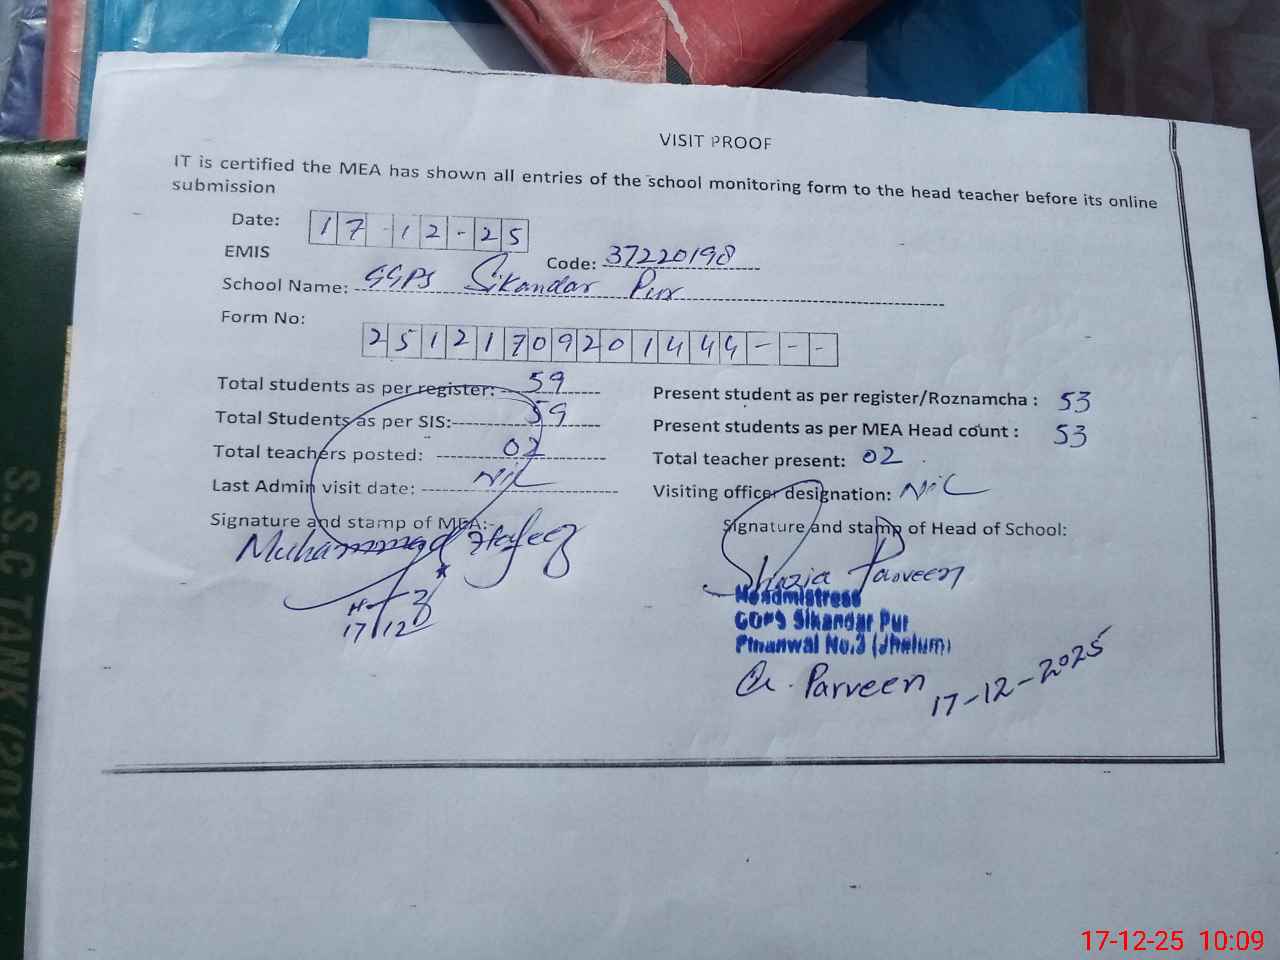 VISIT PROOF
IT is certified the MEA has shown all entries of the school monitoring form to the head teacher before its online
submission
Date: 17-12-25
EMIS Code: 37220198
School Name: GGPS Sikandar Pur
Form No: 25121709201444---
Total students as per register: 59 Present student as per register/Roznamcha : 53
Total Students as per SIS: 59 Present students as per MEA Head count : 53
Total teachers posted: 02 Total teacher present: 02
Last Admin visit date: Nil Visiting officer designation: Nil
Signature and stamp of MEA:- Signature and stamp of Head of School:
Muhammad Hafeez Shazia Parveen
17/12 Headmistress
GGPS Sikandar Pur
Pinanwal No.3 (Jhelum)
Parveen 17-12-2025
S.S.C TANK (2011)
17-12-25 10:09